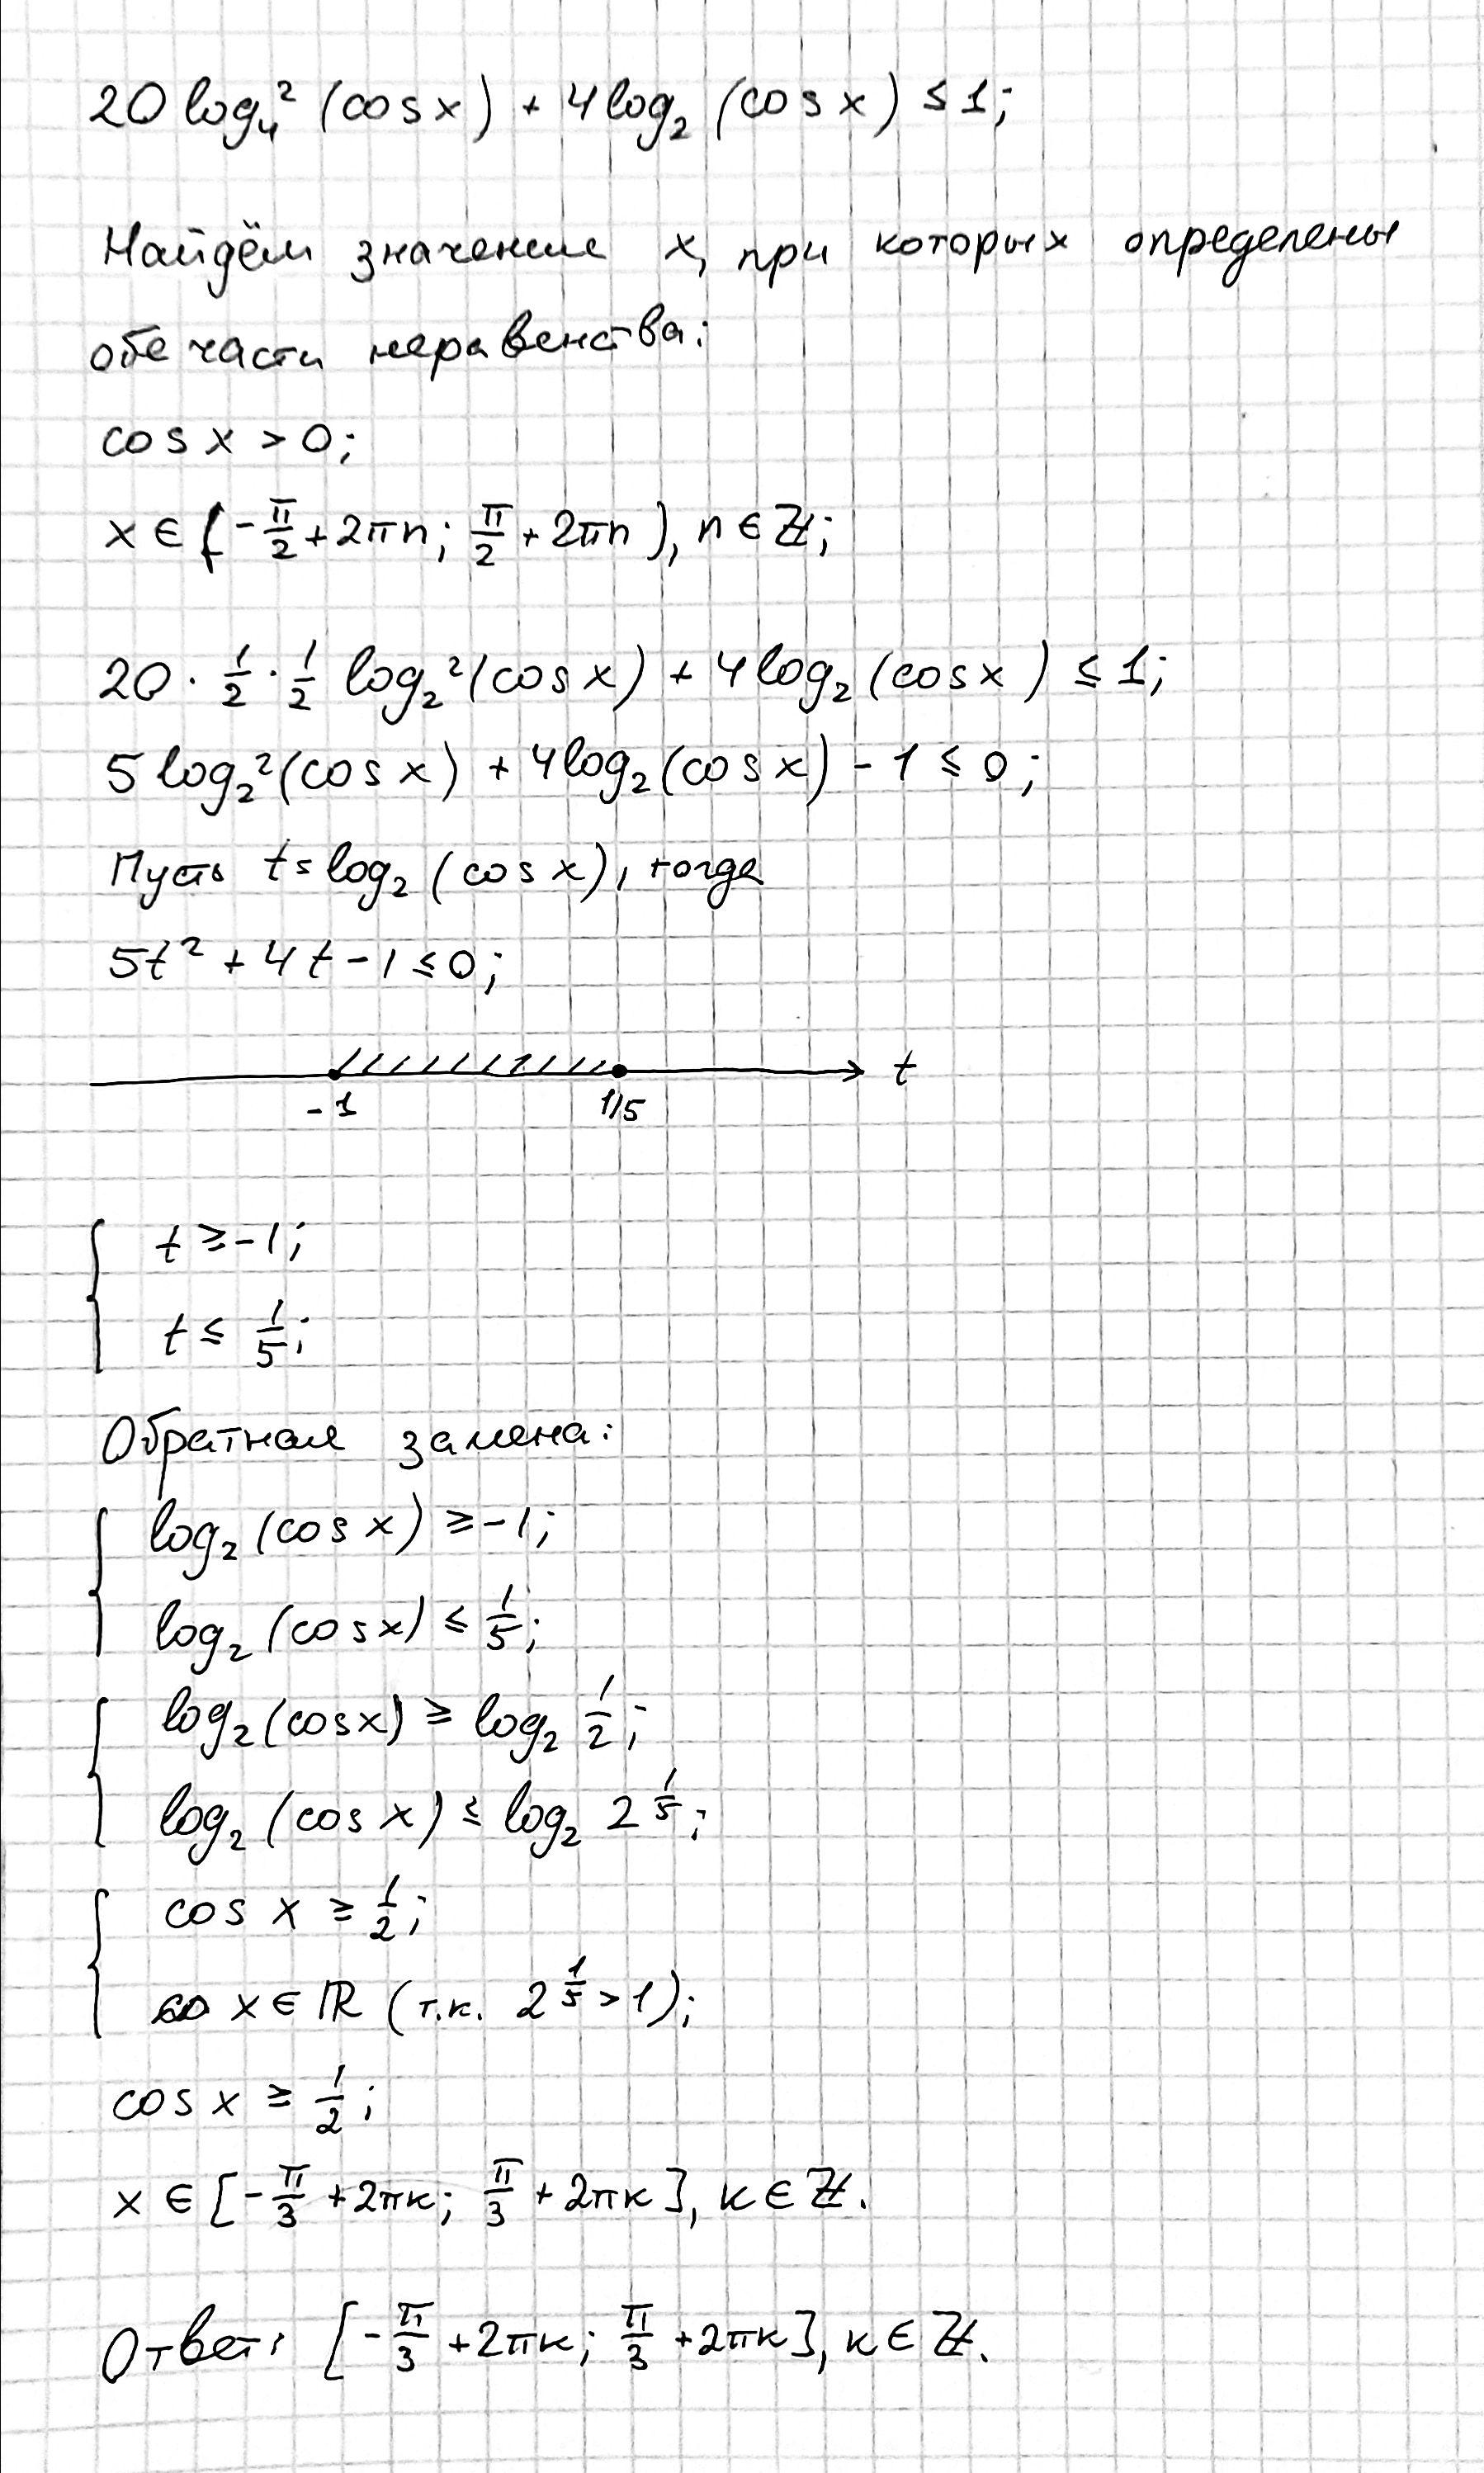 20 log₄² (cos x) + 4 log₂ (cos x) ≤ 1;
Найдём значения x, при которых определены
обе части неравенства:
cos x > 0;
x ∈ (-π/2 + 2πn; π/2 + 2πn), n ∈ ℤ;
20 · 1/2 · 1/2 log₂² (cos x) + 4 log₂ (cos x) ≤ 1;
5 log₂² (cos x) + 4 log₂ (cos x) - 1 ≤ 0;
Пусть t = log₂ (cos x), тогда
5t² + 4t - 1 ≤ 0;
-1 1/5 t
t ≥ -1;
t ≤ 1/5;
Обратная замена:
log₂ (cos x) ≥ -1;
log₂ (cos x) ≤ 1/5;
log₂ (cos x) ≥ log₂ 1/2;
log₂ (cos x) ≤ log₂ 2^(1/5);
cos x ≥ 1/2;
x ∈ ℝ (т.к. 2^(1/5) > 1);
cos x ≥ 1/2;
x ∈ [-π/3 + 2πk; π/3 + 2πk], k ∈ ℤ.
Ответ: [-π/3 + 2πk; π/3 + 2πk], k ∈ ℤ.